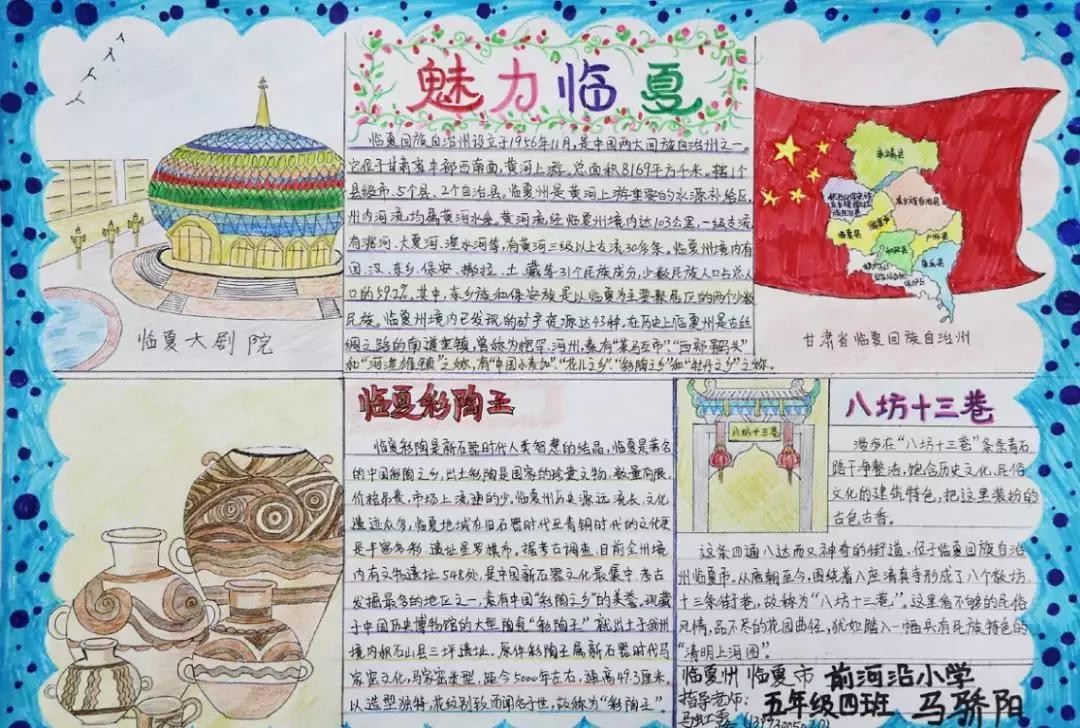 魅力临夏
临夏回族自治州设立于1956年11月,是中国两大回族自治州之一。
它位于甘肃省中部西南面,黄河上游。总面积8169平方千米。辖1个
县级市、5个县、2个自治县。临夏州是黄河上游重要的水源补给区,
州内河流均属黄河水系。黄河流经临夏州境内达103公里,一级支流
有洮河、大夏河、湟水河等,有黄河三级以上支流30多条。临夏州境内有
回、汉、东乡、保安、撒拉、土、藏等31个民族成分,少数民族人口占总人
口的59.2%。其中,东乡族和保安族是以临夏为主要聚居区的两个少数
民族。临夏州境内已发现的矿产资源达43种。在历史上临夏州是古丝
绸之路的南道重镇,曾称为枹罕、河州,素有“茶马互市”、“西部旱码头”
和“河湟雄镇”之称,有“中国小麦加”、“花儿之乡”、“彩陶之乡”和“牡丹之乡”之称。
临夏大剧院
永靖县
东乡族自治县
临夏县
临夏市
广河县
和政县
康乐县
甘肃省临夏回族自治州
临夏彩陶王
临夏彩陶是新石器时代人类智慧的结晶,临夏是著名
的中国彩陶之乡,出土彩陶是国家的珍贵文物,数量有限,
价格昂贵,市场上流通的少。临夏州历史源远流长,文化
遗迹众多,临夏地域在旧石器时代至青铜时代的文化更
是丰富多彩,遗址星罗棋布。据考古调查,目前全州境
内有文物遗址548处,是中国新石器文化最集中、考古
发掘最多的地区之一,素有中国“彩陶之乡”的美誉。现藏
于中国历史博物馆的大型陶瓮“彩陶王”就出土于我州
境内积石山县三坪遗址。原件彩陶王属新石器时代马
家窑文化,马家窑类型,距今5000年左右,通高49.3厘米,
以造型独特,花纹别致而闻名于世,故称为“彩陶王”。
八坊十三巷
八坊十三巷
漫步在“八坊十三巷”条条青石
路干净整洁,饱含历史文化、民俗
文化的建筑特色,把这里装扮的
古色古香。
这条四通八达而又神奇的街道,位于临夏回族自治
州临夏市。从唐朝至今,围绕着八座清真寺形成了八个教坊,
十三条街巷,故称为“八坊十三巷”。这里看不够的民俗
风情,品不尽的花园曲径,犹如踏入一幅具有民族特色的
“清明上河图”。
临夏州 临夏市 前河沿小学
指导老师: 五年级四班 马骄阳